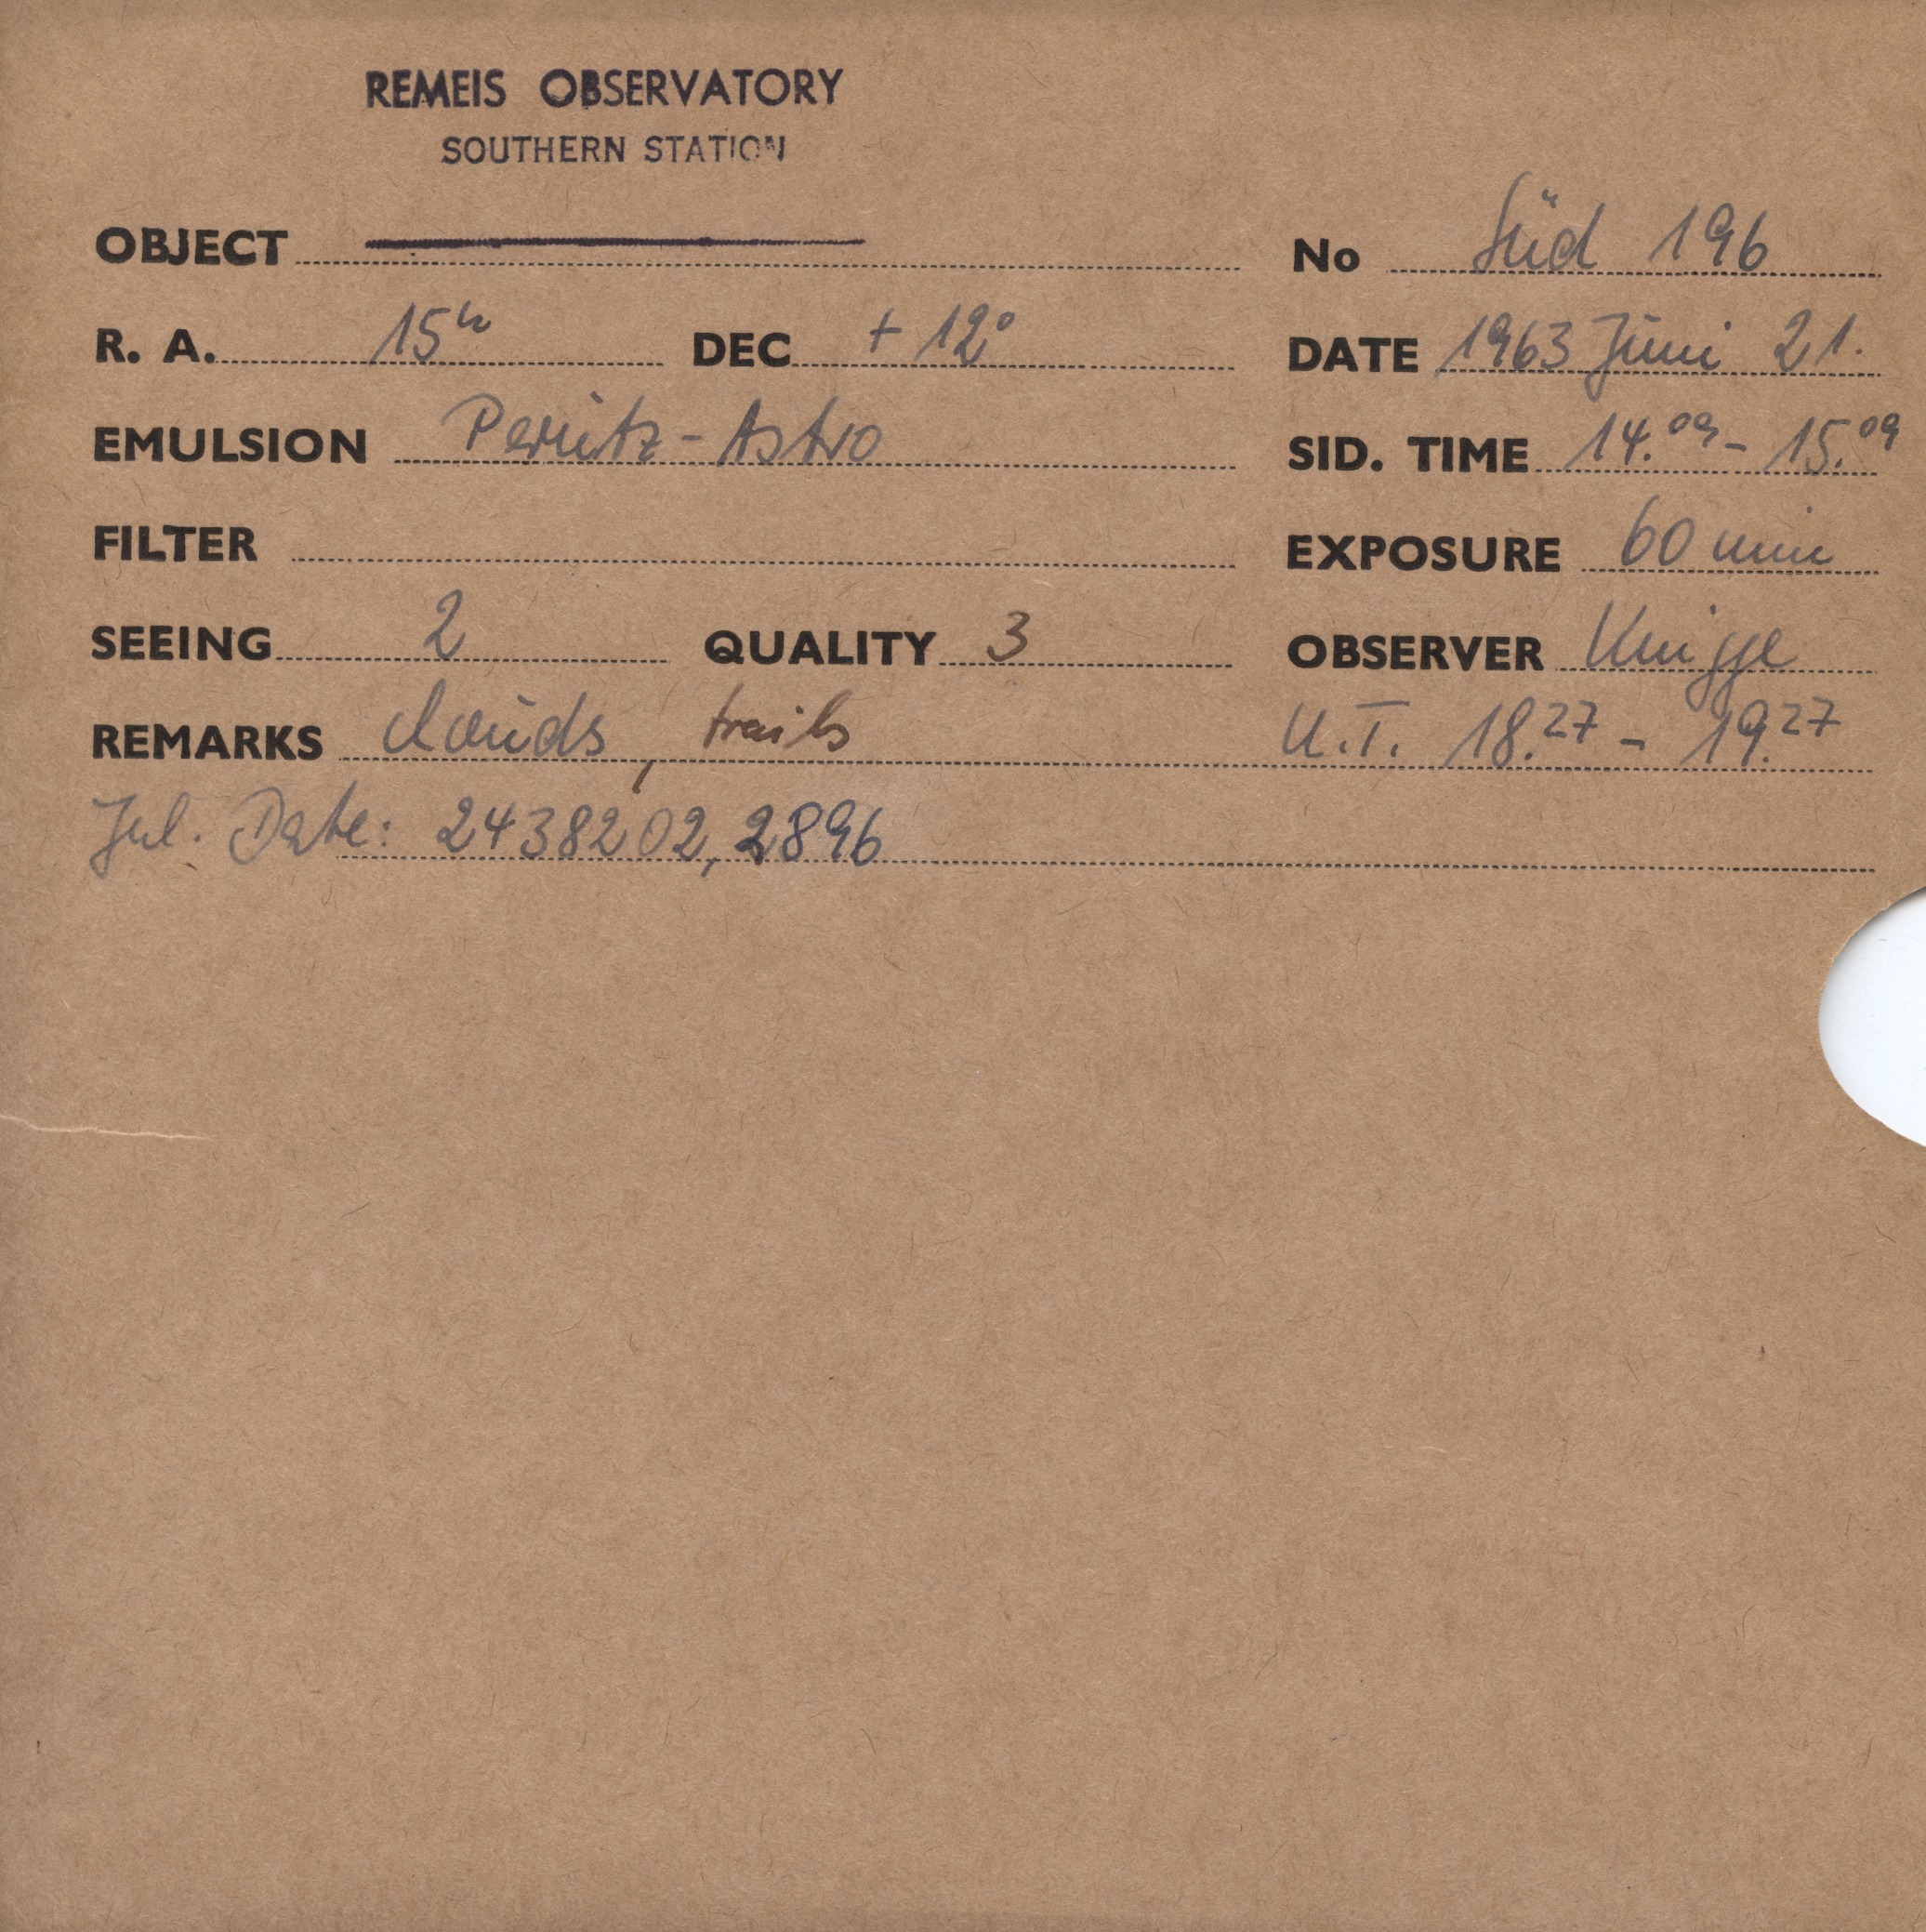 REMEIS OBSERVATORY
SOUTHERN STATION
OBJECT No Süd 196
R. A. 15h DEC + 12° DATE 1963 Juni 21.
EMULSION Perutz - Astro SID. TIME 14.09 - 15.09
FILTER EXPOSURE 60 min
SEEING 2 QUALITY 3 OBSERVER Knigge
REMARKS clouds, trails U.T. 18.27 - 19.27
Jul. Date: 2438202,2896